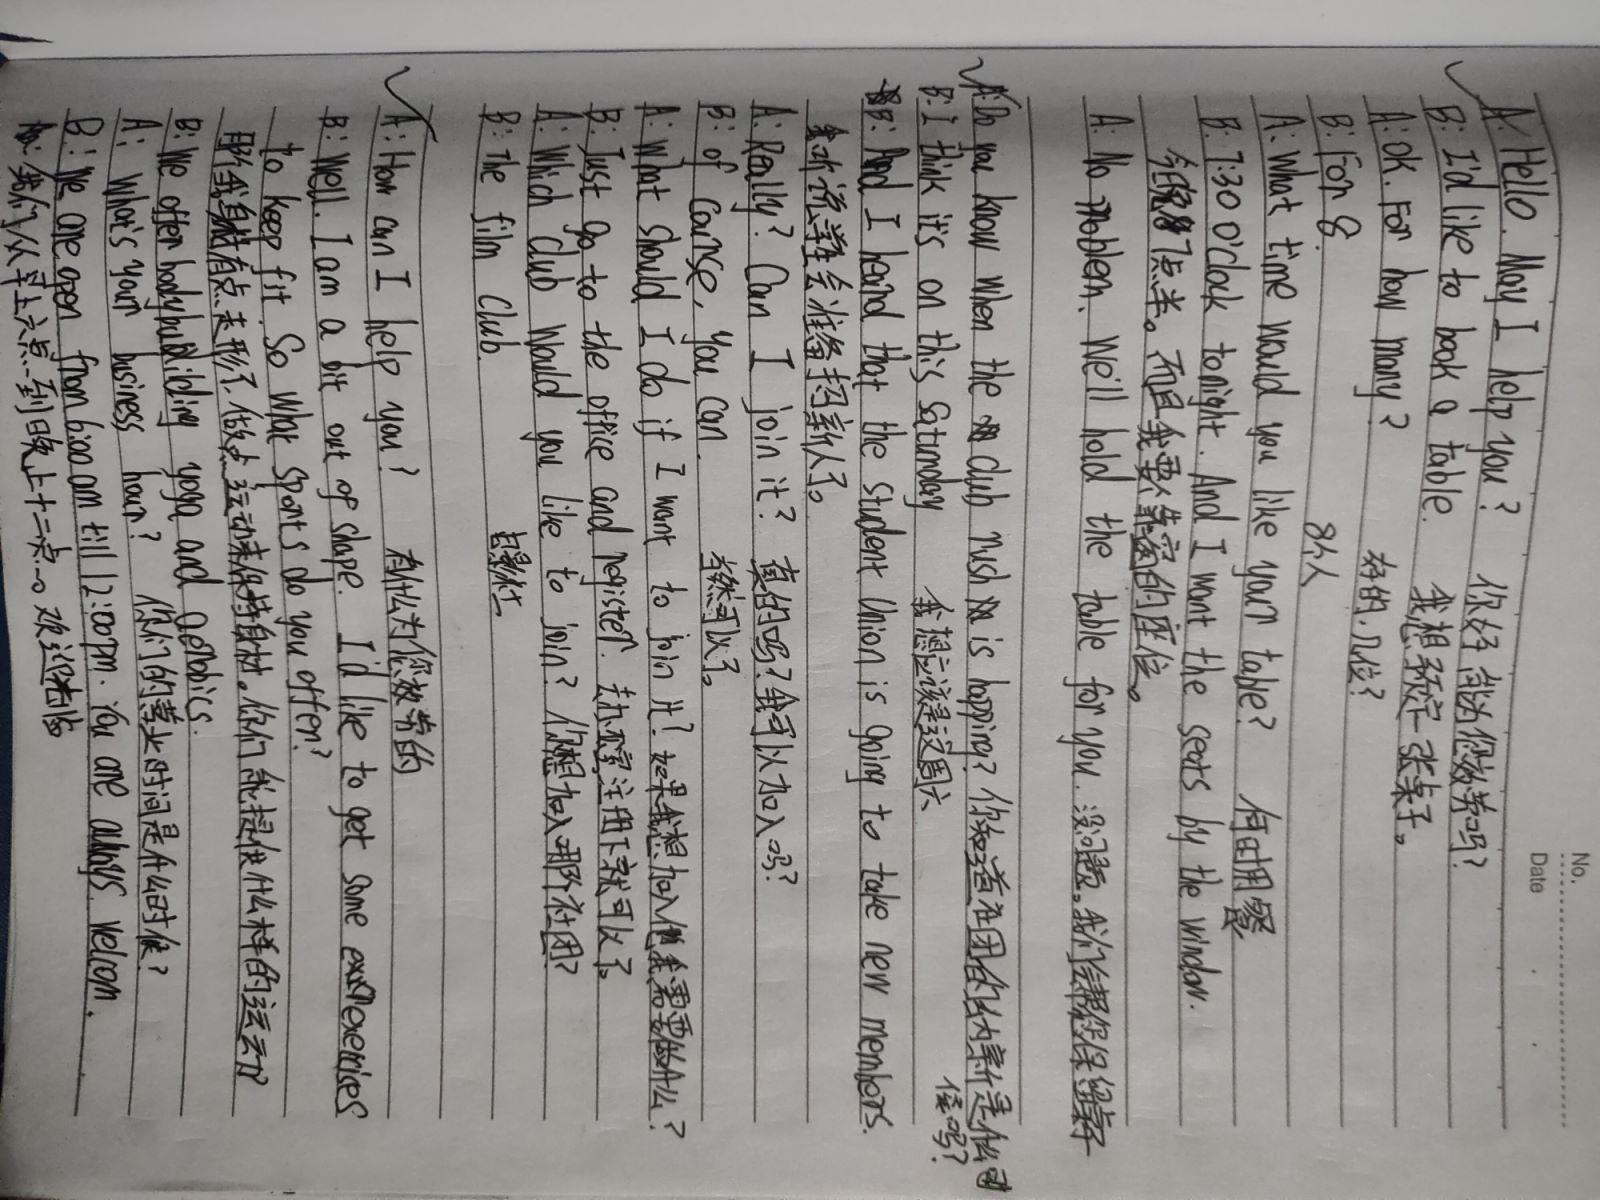 No.
Date
A: Hello. May I help you? 你好 能为您效劳吗?
B: I'd like to book a table. 我想预定一张桌子。
A: OK. For how many? 好的,几位?
B: For 8. 8人
A: What time would you like your table? 何时用餐
B: 7:30 o'clock tonight. And I want the seats by the window.
今晚7点半。而且我要靠窗的座位。
A: No problem. We'll hold the table for you. 没问题。我们会帮您保留桌子
A: Do you know when the club rush is happing? 你知道社团的纳新是什么时
候吗?
B: I think it's on this Saturday 我想应该是这周六
B: And I heard that the student Union is going to take new members.
我听说学生会准备招新人了。
A: Really? Can I join it? 真的吗?我可以加入吗?
B: of Course, you can. 当然可以了。
A: What should I do if I want to join it? 如果我想加入他我需要做什么?
B: Just go to the office and register. 去办公室注册下就可以了。
A: Which Club Would you like to join? 你想加入哪个社团?
B: The film Club. 电影社
A: How can I help you? 有什么为您效劳的
B: Well. I am a bit out of shape. I'd like to get some exercises
to keep fit. So what sports do you offen?
那个我身材有点走形了,做点运动来保持身材。你们能提供什么样的运动?
B: We offer bodybuilding yoga and aerobics.
A: What's your business hour? 你们的营业时间是什么时候?
B: We are open from 6:00 am till 12:00pm. You are always welcom.
我们从早上六点到晚上十二点。欢迎光临